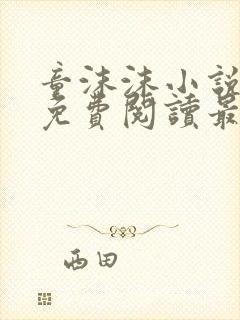 童沫沫小說
免費閱讀最
西田